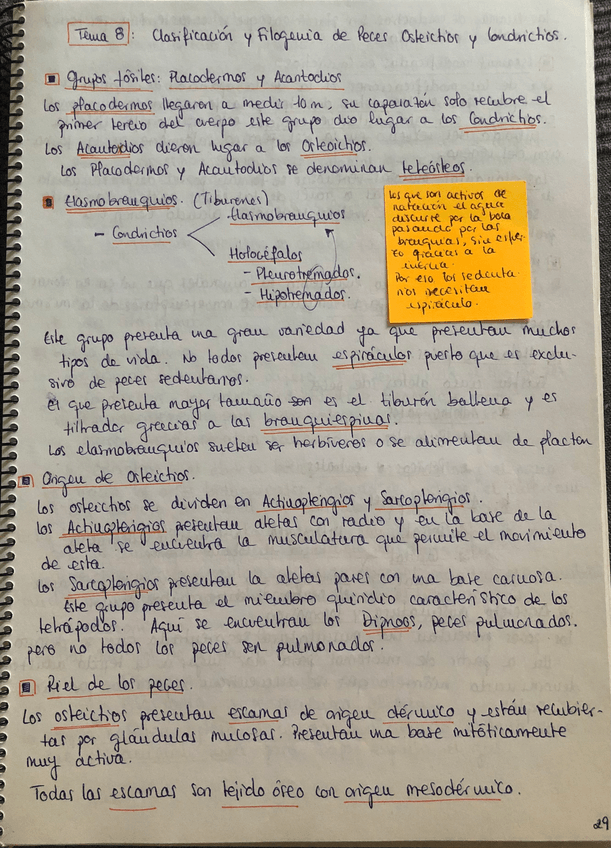 Tema 8: Clasificación y Filogenia de Peces Osteictios y Condrictios.
Grupos fósiles: Placodermos y Acantodios
Los placodermos llegaron a medir 10 m, su caparaton solo recubre el
primer tercio del cuerpo este grupo dio lugar a los Condrictios.
Los Acantodios dieron lugar a los Osteoictios.
Los Placodermos y Acantodios se denominan teleósteos.
Elasmobranquios. (Tiburones)
Elasmobranquios
- Condrictios
Holocéfalos
- Pleurotremados.
- Hipotremados.
Los que son activos de
natación el agua
discurre por la boca
pasando por las
branquias, sin esfuer-
zo gracias a la
inercia.
Por eso los sedenta-
rios necesitan
espiráculo.
Este grupo presenta una gran variedad ya que presentan muchos
tipos de vida. No todos presentan espiráculos puesto que es exclu-
sivo de peces sedentarios.
El que presenta mayor tamaño son es el tiburón ballena y es
filtrador gracias a las branquiespinas.
Los elasmobranquios suelen ser herbívoros o se alimentan de placton
Origen de Osteictios.
Los osteictios se dividen en Actinopterigios y Sarcopterigios.
Los Actinopterigios presentan aletas con radio y en la base de la
aleta se encuentra la musculatura que permite el movimiento
de esta.
Los Sarcopterigios presentan la aletas pares con una base carnosa.
Este grupo presenta el miembro quiridio característico de los
tetrápodos. Aquí se encuentran los Dipnoos, peces pulmonados.
pero no todos los peces son pulmonados.
Piel de los peces.
Los osteictios presentan escamas de origen dérmico y están recubier-
tas por glándulas mucosas. Presentan una base mitóticamente
muy activa.
Todas las escamas son tejido óseo con origen mesodérmico.
29